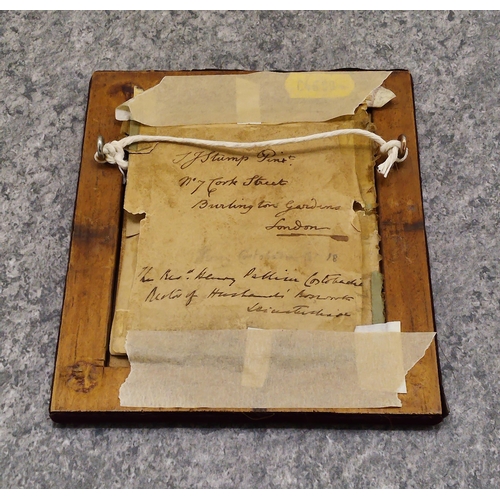 S J Stump Pinxt
No 7 Cork Street
Burlington Gardens
London
18
The Revd Henry
Rector of Husbands Bosworth
Leicestershire